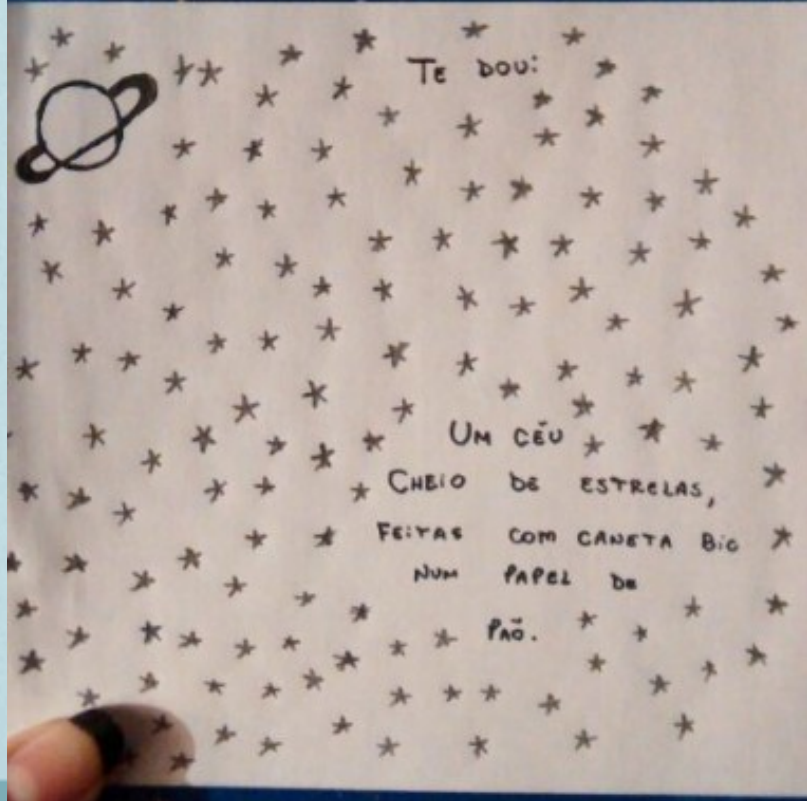 TE DOU:
UM CÉU
CHEIO DE ESTRELAS,
FEITAS COM CANETA BIC
NUM PAPEL DE
PÃO.